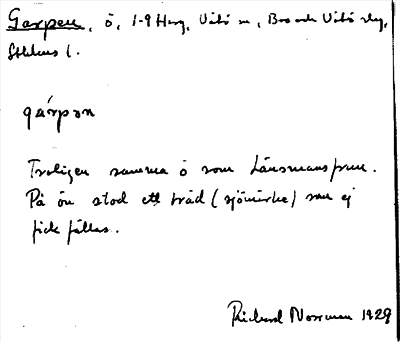 Garpen, ö, 1-9 Harg, Utö sn,
Sthlms l.
gárpən
Troligen samma ö som Länsmansprun.
På ön stod ett träd (sjömärke) som ej
fick fällas.
Richard Norrman 1929